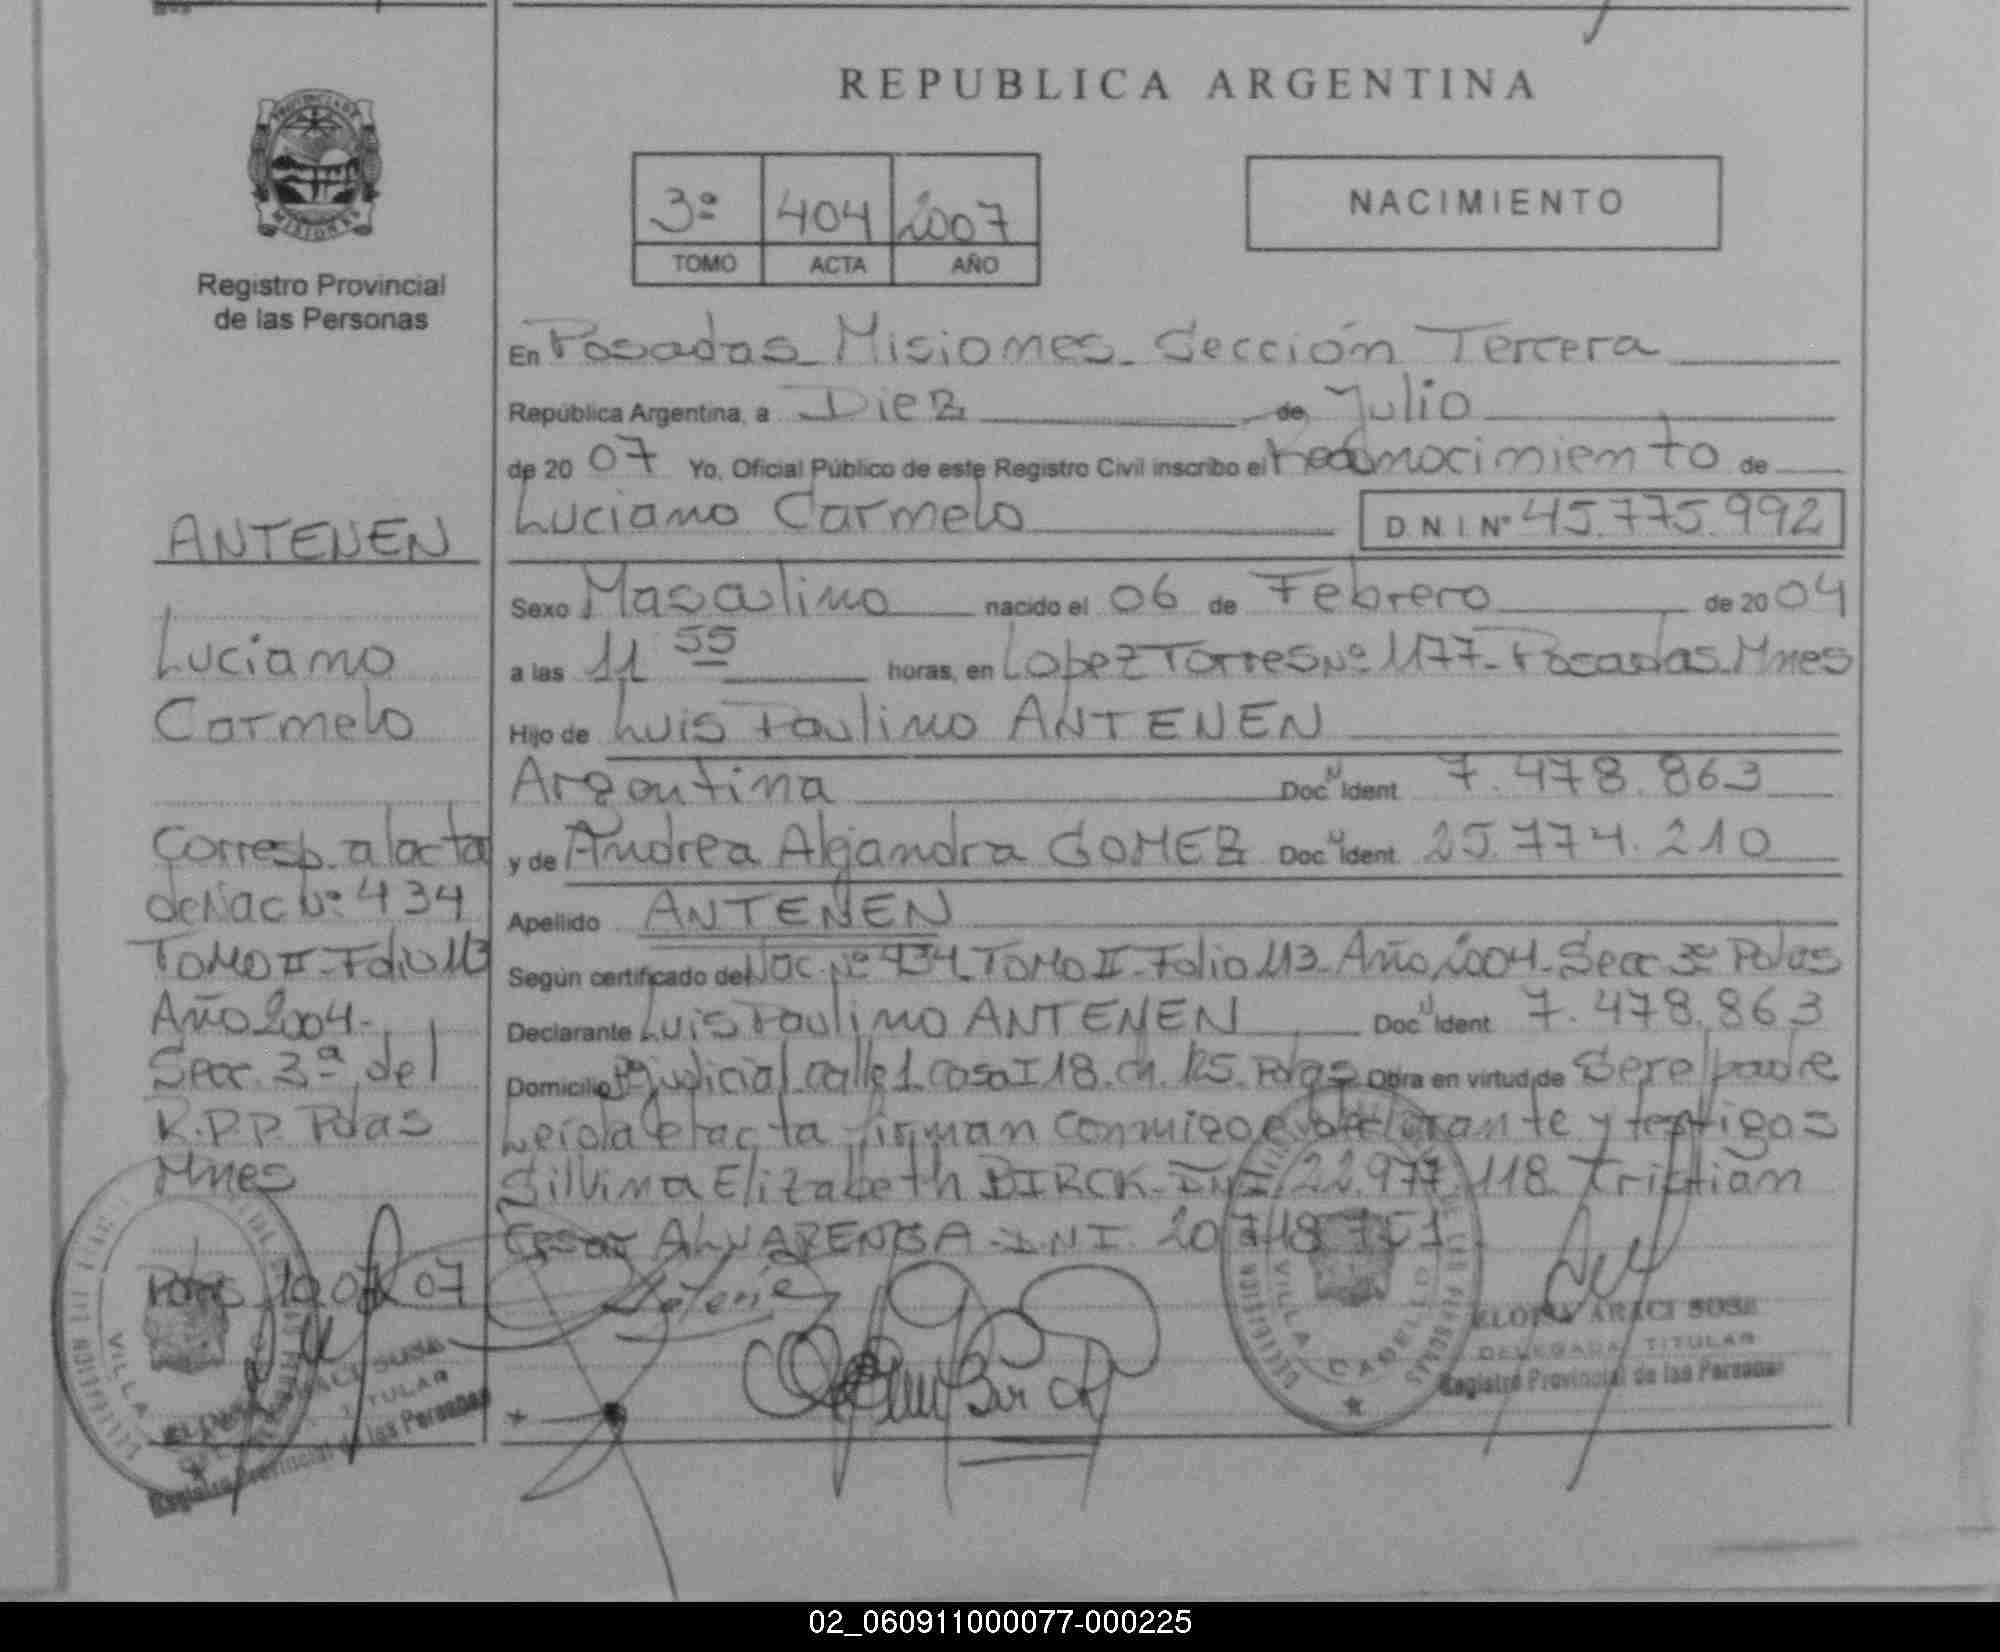 REPUBLICA ARGENTINA
PROVINCIA DE
MISIONES
Registro Provincial
de las Personas
3º 404 2007
TOMO ACTA AÑO
NACIMIENTO
En Posadas Misiones Sección Tercera
República Argentina, a Diez de Julio
de 2007 Yo, Oficial Público de este Registro Civil inscribo el Reconocimiento de
Luciano Carmelo D N I Nº 45.775.992
Sexo Masculino nacido el 06 de Febrero de 2004
a las 11 55 horas, en Lopez Torres Nº 1177 - Posadas Mnes
Hijo de Luis Paulino ANTENEN
Argentina Doc Ident 7.478.863
y de Andrea Alejandra GOMEZ Doc Ident 25.774.210
Apellido ANTENEN
Según certificado de Nac. Nº 434 TOMO II - Folio 113 - Año 2004 - Secc 3º Pdas
Declarante Luis Paulino ANTENEN Doc Ident 7.478.863
Domicilio Bº Judicial calle 1 casa I 18. ch. 125. Pdas Obra en virtud de Ser el padre
Leida el acta firman conmigo el declarante y testigos
Silvina Elizabeth BIRCK - DNI 22.977.118 Cristian
Cesar ALVARENGA D.N.I. 20 718 751
ANTENEN
Luciano
Carmelo
Corresp. al acta
de Nac Nº 434
TOMO II - Folio 113
Año 2004 -
Secc. 3ª del
R.P.P. Pdas
Mnes
Pdas 10 07 07
VILLA CABELLO
ARACI SOSA
DELEGADA TITULAR
Registro Provincial de las Personas
VILLA
ARACI SOSA
TITULAR
Registro Provincial de las Personas
02_060911000077-000225